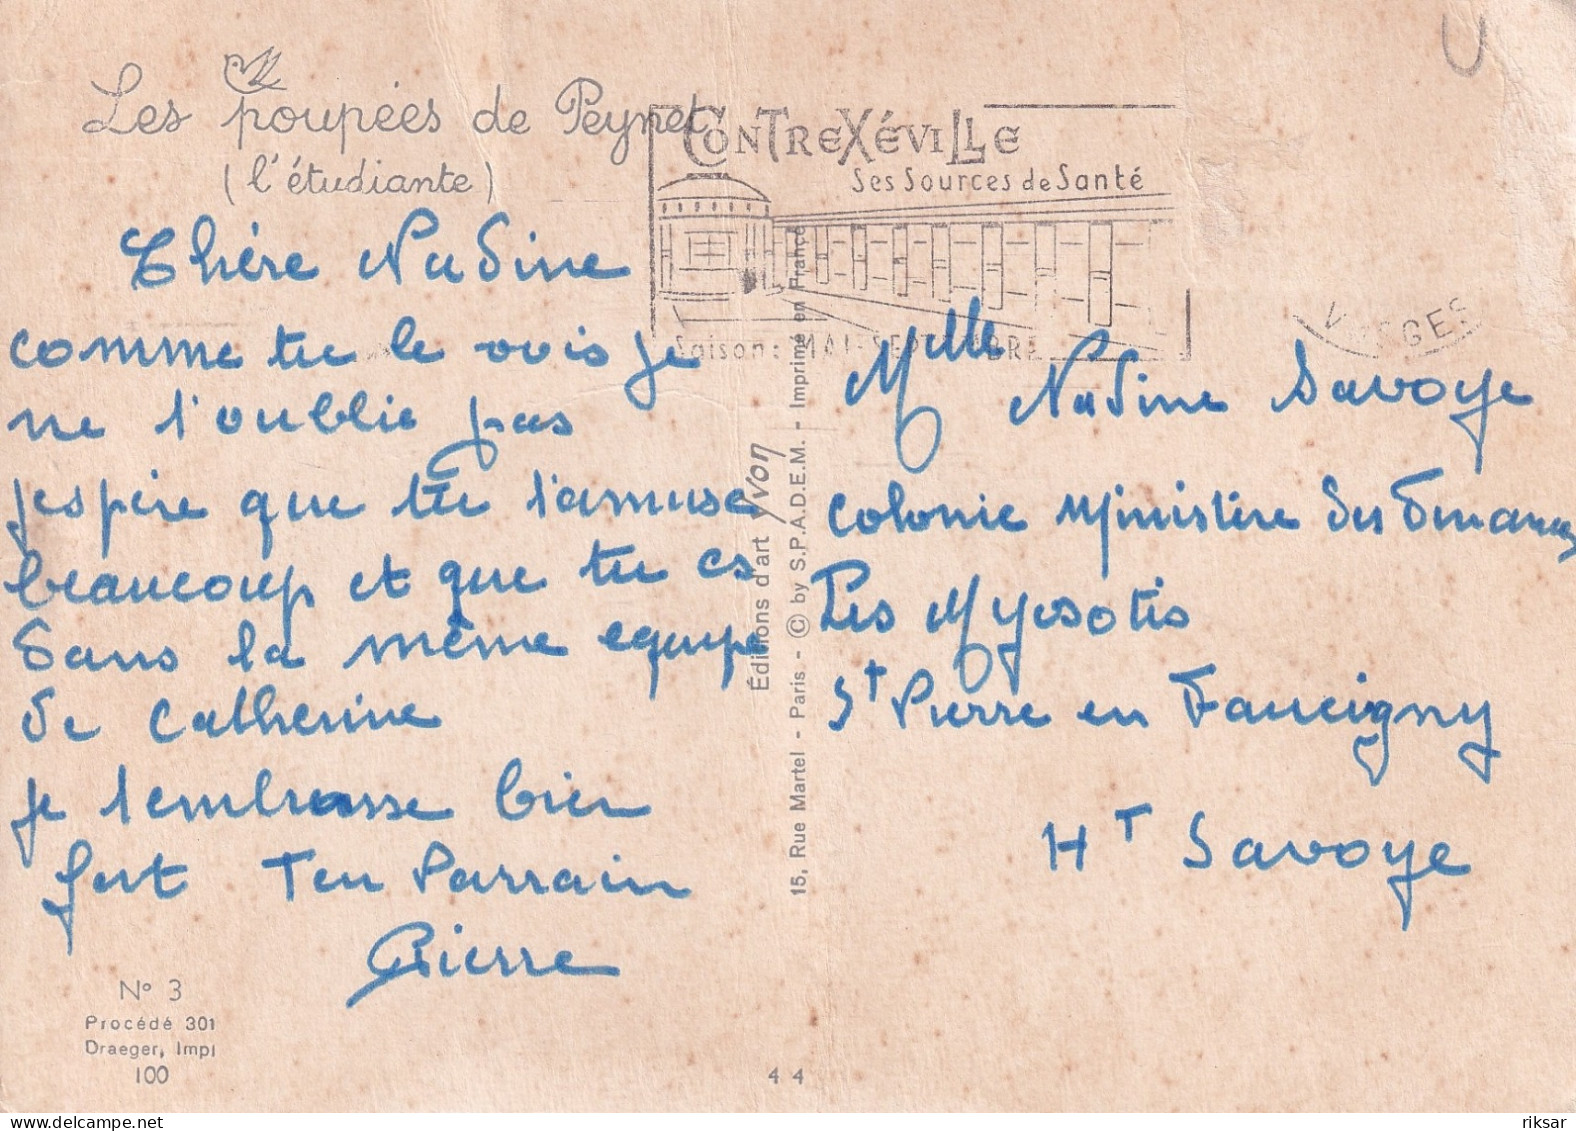 Les poupées de Peynet
(l'étudiante)
ConTReXéviLLe
Ses Sources de Santé
Saison: MAI-SEPTEMBRE
VOSGES
Chère Nadine
comme tu le vois je
ne t'oublie pas
j'espère que tu t'amuse
beaucoup et que tu es
dans la même equipe
de Catherine
je t'embrasse bien
fort Ton Parrain
Pierre
N° 3
Procédé 301
Draeger, Impr
100
Éditions d'art Yvon
15, Rue Martel - Paris - © by S.P.A.D.E.M. - Imprimé en France
44
Melle Nadine Savoye
Colonie Ministère des Finances
Les Myosotis
St Pierre en Faucigny
HT Savoye
U
delcampe.net
riksar